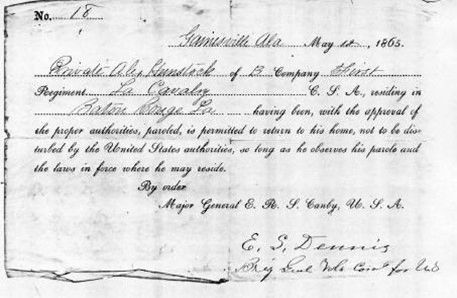 No. 18
Gainesville Ala May 12, 1865.
Private Alex of B Company First
Regiment La Cavalry C. S. A., residing in
Baton Rouge La having been, with the approval of
the proper authorities, paroled, is permitted to return to his home, not to be dis-
turbed by the United States authorities, so long as he observes his parole and
the laws in force where he may reside.
By order
Major General E. R. S. Canby, U. S. A.
E. S. Dennis
Brig Genl Vols Comr for U.S